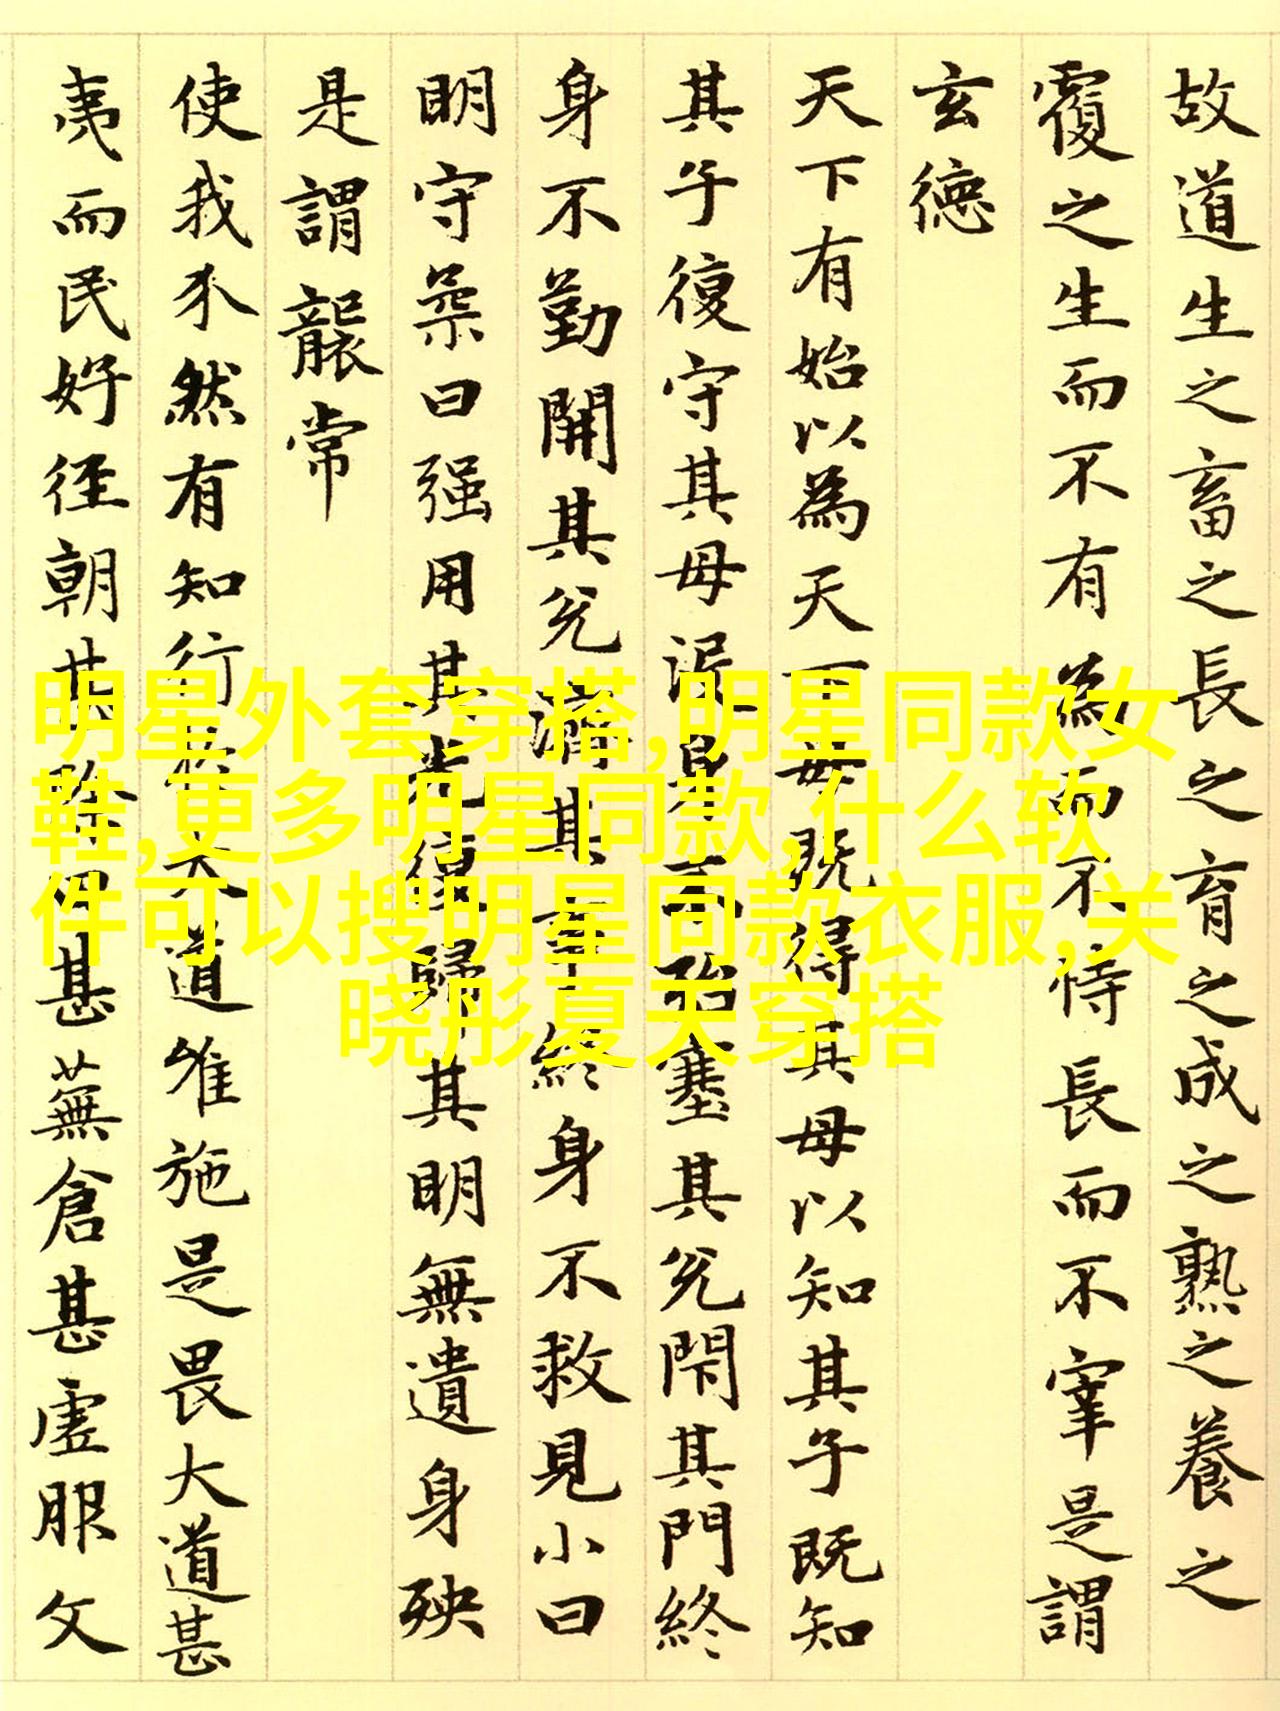 故道生之畜之長之育之成之熟之養之
覆之生而不有為而不恃長而不宰是謂
玄德
天下有始以為天下母既得其母以知其子既知
其子復守其母没身不殆塞其兊閇其門終
身不勤開其兊濟其事終身不救見小曰
明守柔曰强用其光復歸其明無遺身殃
是謂襲常
使我介然有知行於大道唯施是畏大道甚
夷而民好徑朝甚除田甚蕪倉甚虛服文
明星外套穿搭,明星同款女
鞋,更多明星同款,什么软
件可以搜明星同款衣服,关
晓彤夏天穿搭